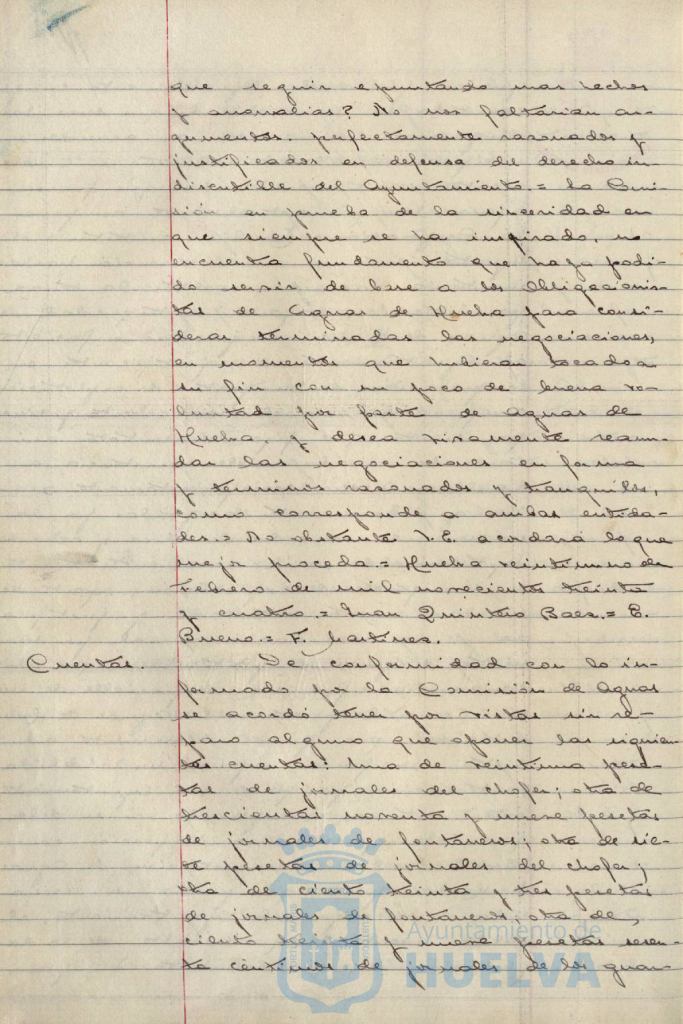 que seguir apuntando mas hechos
y anomalias? No nos faltarian ar-
gumentos. perfectamente razonados y
justificados en defensa del derecho in-
discutible del Ayuntamiento.= La Comi-
sión en prueba de la sinceridad en
que siempre se ha inspirado, no
encuentra fundamento que haya podi-
do servir de base a los Obligacionis-
tas de Aguas de Huelva para consi-
derar terminadas las negociaciones,
en momentos que hubieran tocado a
su fin con un poco de buena vo-
luntad por parte de Aguas de
Huelva, y desea vivamente reanu-
dar las negociaciones en forma
y terminos razonados y tranquilos,
como corresponde a ambas entida-
des.= No obstante V. E. acordará lo que
mejor proceda.= Huelva veintiuno de
Febrero de mil novecientos treinta
y cuatro.= Juan Quintero Baez.= E.
Bueno.= F. Martinez.
Cuentas. De conformidad con lo in-
formado por la Comisión de Aguas
se acordó tener por vistas sin re-
paro alguno que oponer las siguien-
tes cuentas: Una de veintiuna pese-
tas de jornales del chofer; otra de
trescientas noventa y nueve pesetas
de jornales de fontaneros; otra de sie-
te pesetas de jornales del chofer;
otra de ciento treinta y tres pesetas
de jornales de fontaneros, otra de
ciento treinta y nueve pesetas sesen-
ta centimos de jornales de los guar-
Ayuntamiento de
HUELVA